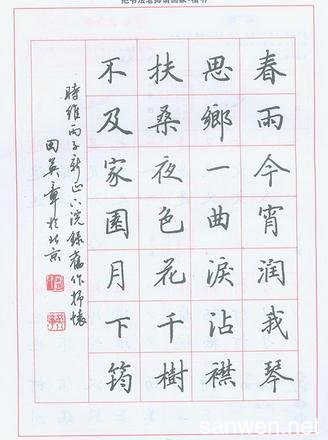 春雨今宵润我琴
思鄉一曲淚沾襟
扶桑夜色花千樹
不及家園月下筠
時維丙子新正下浣錄舊作抒懷
田英章於北京
sanwen.net